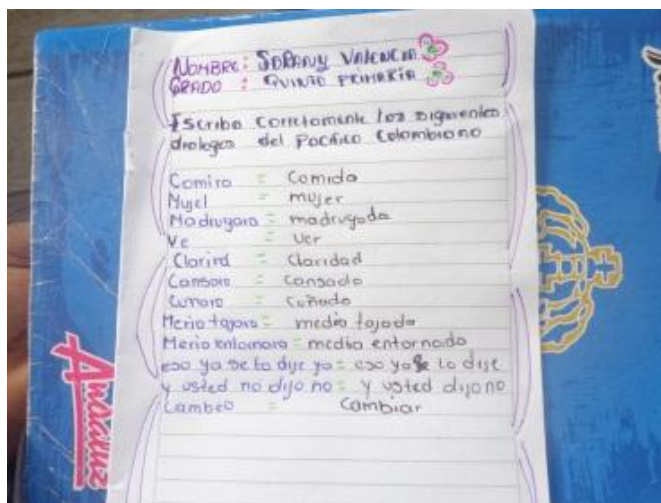 NOMBRE: SORANY VALENCIA
GRADO : QUINTO PRIMARIA
Escribo Corretamente los siguientes
dialogos del Pacifico Colombiano
Comira = Comida
Mujel = mujer
Madrugara = madrugada
Ve = Ver
Clarird = Claridad
Cansaro = Cansado
Cunaro = Cuñado
Merio tajara = media tajada
Merio entornara = media entornado
eso ya se lo dije yo = eso ya se lo dije
y usted no dijo no = y usted dijo no
Cambeo = Cambiar
Andaluz